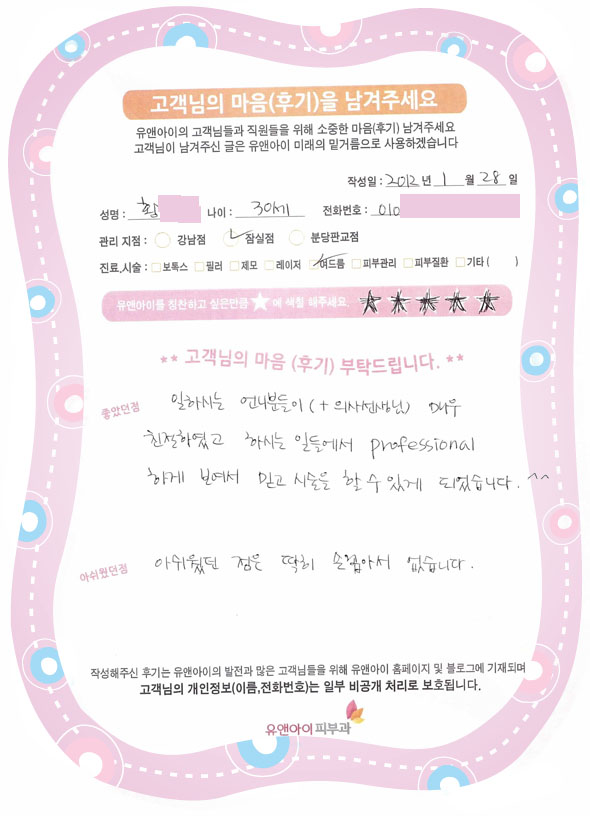 고객님의 마음(후기)을 남겨주세요
유앤아이의 고객님들과 직원들을 위해 소중한 마음(후기) 남겨주세요
고객님이 남겨주신 글은 유앤아이 미래의 밑거름으로 사용하겠습니다
작성일 : 2012 년 1 월 28 일
성명 : 황 나이 : 30세 전화번호 : 010
관리 지점 : 강남점 잠실점 분당판교점
진료,시술 : 보톡스 필러 제모 레이저 여드름 피부관리 피부질환 기타 ( )
유앤아이를 칭찬하고 싶은만큼 ★에 색칠 해주세요 ★★★★★
** 고객님의 마음 (후기) 부탁드립니다. **
좋았던점 일하시는 언니분들이 (+ 의사선생님) 매우
친절하였고 하시는 일들에서 professional
하게 보여서 믿고 시술을 할 수 있게 되었습니다. ^^
아쉬웠던점 아쉬웠던 점은 딱히 손꼽아서 없습니다.
작성해주신 후기는 유앤아이의 발전과 많은 고객님들을 위해 유앤아이 홈페이지 및 블로그에 기재되며
고객님의 개인정보(이름,전화번호)는 일부 비공개 처리로 보호됩니다.
유앤아이피부과